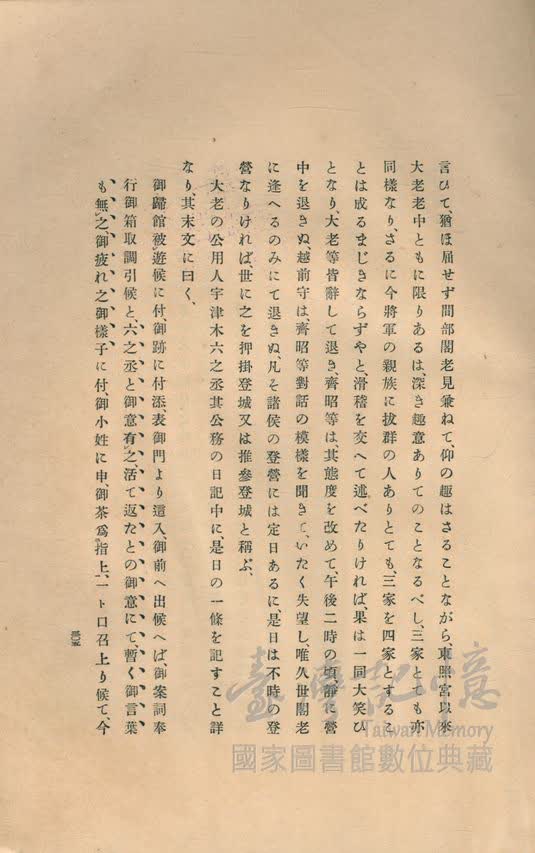 言ひて、猶ほ屆せず間部閣老見兼ねて、仰の趣はさることながら、東照宮以來
大老老中ともに限りあるは、深き趣意ありてのことなるべし、三家とても亦
同樣なり、さるに今將軍の親族に拔群の人ありとても、三家を四家とするこ
とは成るまじきならずやと、滑稽を交へて述べたりければ、果は一同大笑ひ
となり、大老等皆辭して退き、齊昭等は、其態度を改めて、午後二時の頃、靜に營
中を退きぬ、越前守は、齊昭等對話の模樣を聞きて、いたく失望し、唯久世閣老
に逢へるのみにて退きぬ、凡そ諸侯の登營には定日あるに、是日は不時の登
營なりければ、世に之を押掛登城又は推參登城と稱ぶ、
大老の公用人宇津木六之丞其公務の日記中に、是日の一條を記すこと詳
なり、其末文に曰く、
御歸館被遊候に付、御跡に付添、表御門より這入、御前へ出候へば御案詞奉
行御箱取調引候と、六之丞と御意有之、活て返たとの御意にて、暫く御言葉
も無之御疲れ之御樣子に付、御小姓に申、御茶爲指上、一ト口召上り候て、今
臺灣記憶
Taiwan Memory
國家圖書館數位典藏